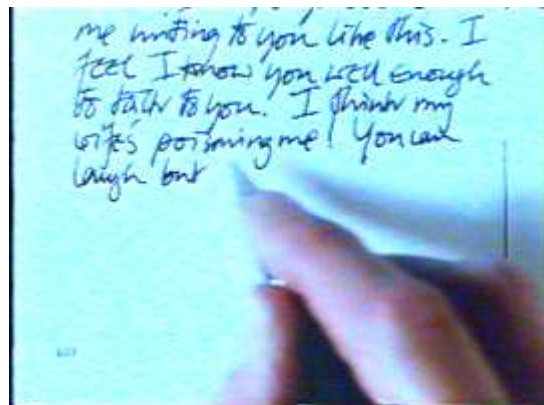 me writing to you like this. I
feel I know you well enough
to talk to you. I think my
wife's poisoning me! You can
laugh but